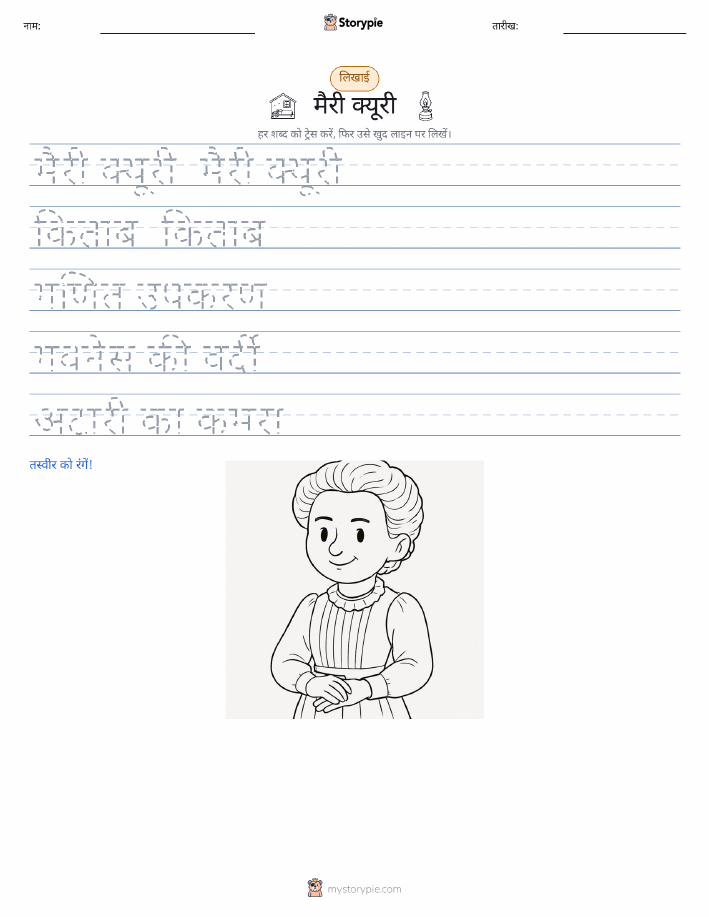 नाम:
Storypie
तारीख:
लिखाई
मैरी क्यूरी
हर शब्द को ट्रेस करें, फिर उसे खुद लाइन पर लिखें।
मैरी क्यूरी मैरी क्यूरी
किताब किताब
गणित उपकरण
गवर्नेस की वर्दी
अटारी का कमरा
तस्वीर को रंगें!
mystorypie.com